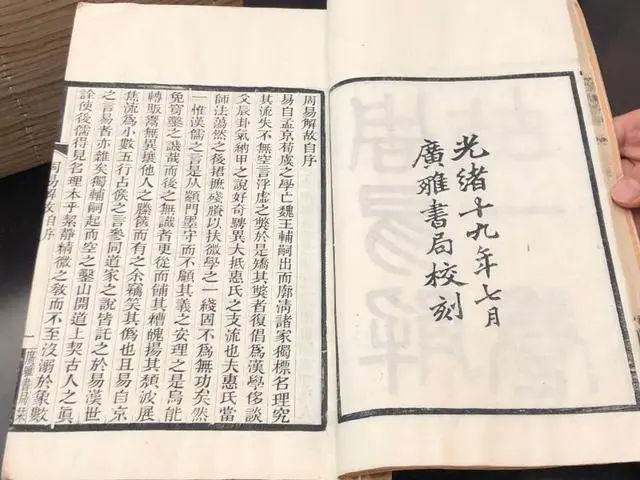 光緒十九年七月
廣雅書局校刻
周易解故自序
易自孟京荀虞之學亡魏王輔嗣出而廓清諸家獨標名理究
其流失不無空言浮虛之獘於是矯其獘者復倡爲漢學侈談
爻辰卦氣納甲之說好奇騁異大抵惠氏之支流也夫惠氏當
師法蕩然之後捃摭殘賸以扶微學之一綫固不爲無功矣然
一惟漢儒之言是从顓門墨守而不顧其義之安理之是烏能
免穿鑿之譏哉而後之無識者更從而餔其糟魄揚其頹波展
轉販鬻無異攘他人之縢篋而有之余竊笑其僞也且易自京
焦流爲小數五行占候之言參同道家之說皆託之於易漢世
之言易者亦雜矣獨輔嗣起而空之鑿山開道上契古人之眞
詮使後儒得見名理本乎絜靜精微之敎而不至沒溺於象數
周易解故自序 一 廣雅書局栞